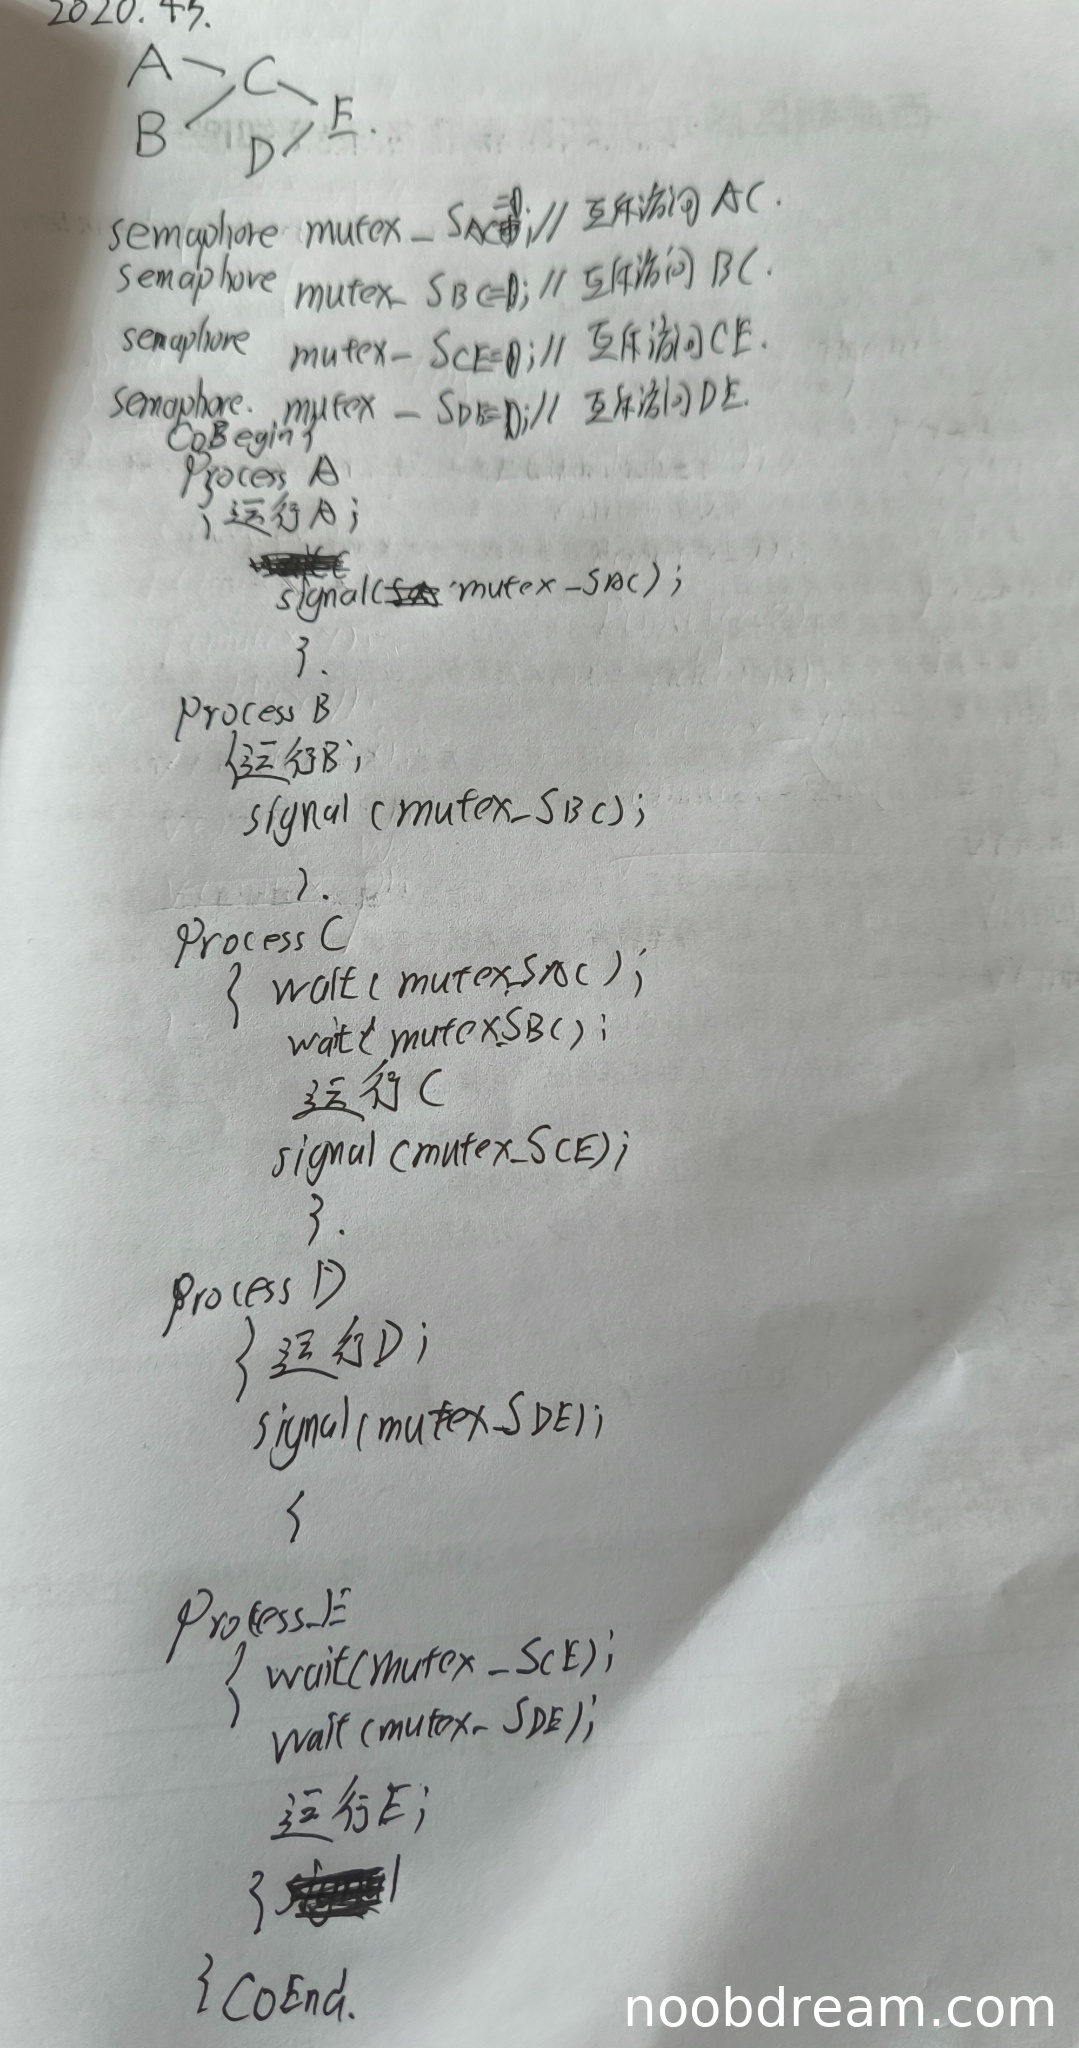 2020.45.
A C
B D E.
semaphore mutex_SAC=0;//互斥访问AC.
semaphore mutex_SBC=0;//互斥访问BC.
semaphore mutex_SCE=0;//互斥访问CE.
semaphore. mutex_SDE=0;//互斥访问DE.
CoBegin{
Process A
{运行A;
signal(mutex_SAC);
}.
Process B
{运行B;
signal(mutex_SBC);
}.
Process C
{ wait(mutex_SAC);
wait(mutex_SBC);
运行C
signal(mutex_SCE);
}.
Process D
{运行D;
signal(mutex_SDE);
{
Process_E
{ wait(mutex_SCE);
wait(mutex_SDE);
运行E;
}
{CoEnd.
noobdream.com